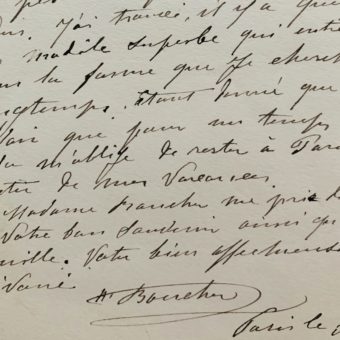 pe
ous. J'ai trouvé, il y a que
modèle superbe qui entre
ans la forme que je cherch
longtemps. étant donné que
loir que pour un temps
m'oblige de rester à Par
de mes Vacances
Madame Boucher me prie d
Votre bon Souvenir ainsi qu
mille. Votre bien affectueuse
évoué
Hi Boucher
Paris le